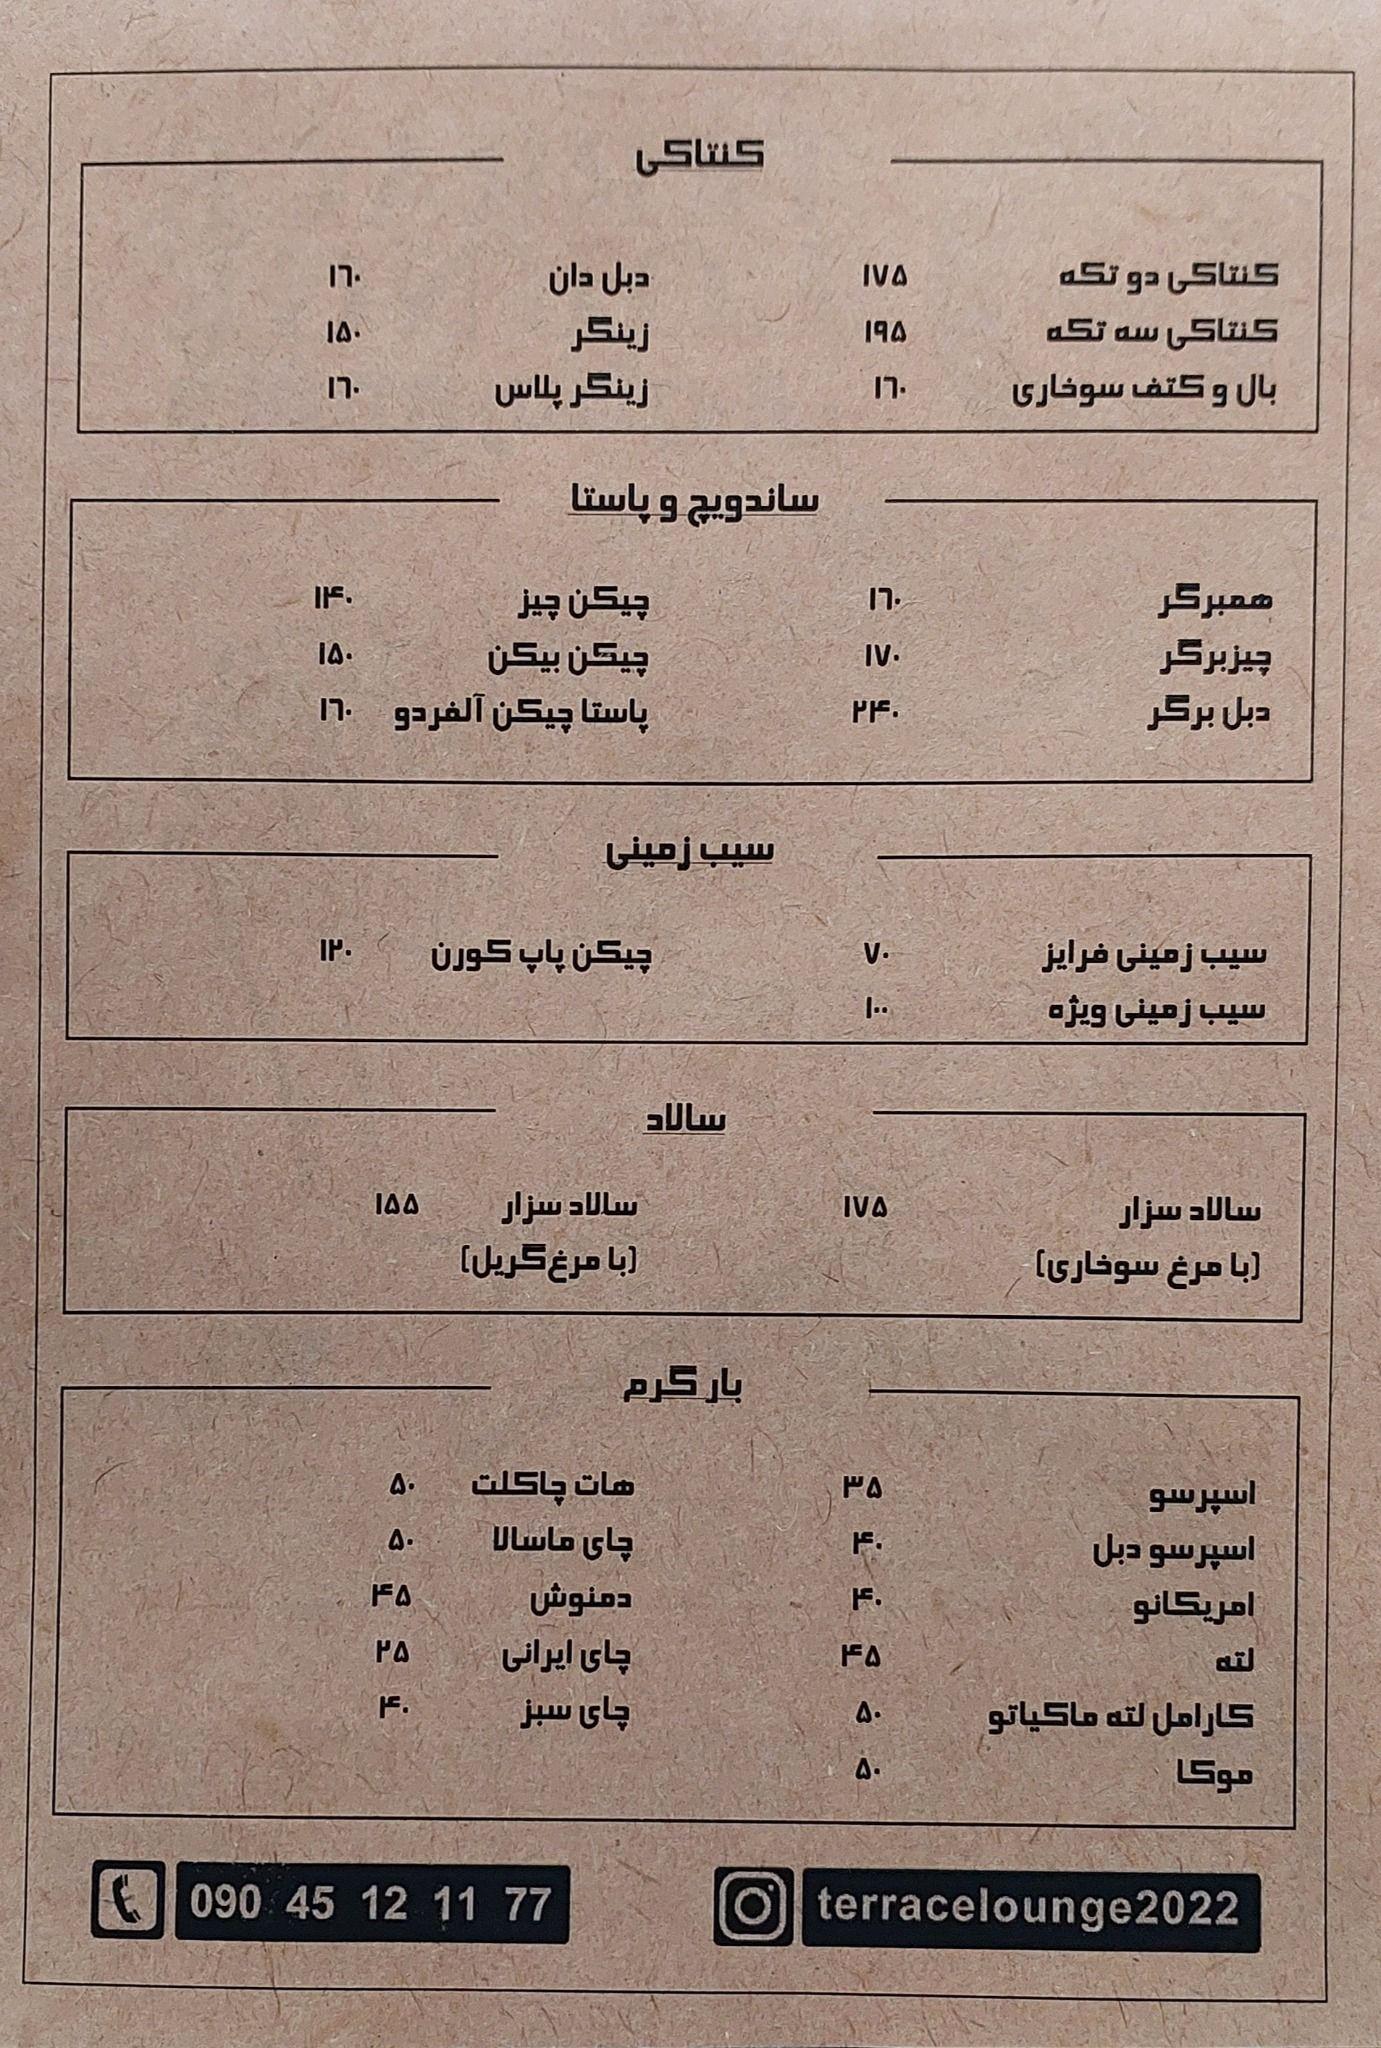 کنتاکی
کنتاکی دو تکه ۱۷۵ دبل دان ۱۶۰
کنتاکی سه تکه ۱۹۵ زینگر ۱۵۰
بال و کتف سوخاری ۱۶۰ زینگر پلاس ۱۶۰
ساندویچ و پاستا
همبرگر ۱۶۰ چیکن چیز ۱۴۰
چیزبرگر ۱۷۰ چیکن بیکن ۱۵۰
دبل برگر ۲۴۰ پاستا چیکن آلفردو ۱۶۰
سیب زمینی
سیب زمینی فرایز ۷۰ چیکن پاپ کورن ۱۲۰
سیب زمینی ویژه ۱۰۰
سالاد
سالاد سزار ۱۷۵ سالاد سزار ۱۵۵
(با مرغ سوخاری) (با مرغ گریل)
بار گرم
اسپرسو ۳۵ هات چاکلت ۵۰
اسپرسو دبل ۴۰ چای ماسالا ۵۰
امریکانو ۴۰ دمنوش ۴۵
لته ۴۵ چای ایرانی ۲۵
کارامل لته ماکیاتو ۵۰ چای سبز ۴۰
موکا ۵۰
090 45 12 11 77 terracelounge2022